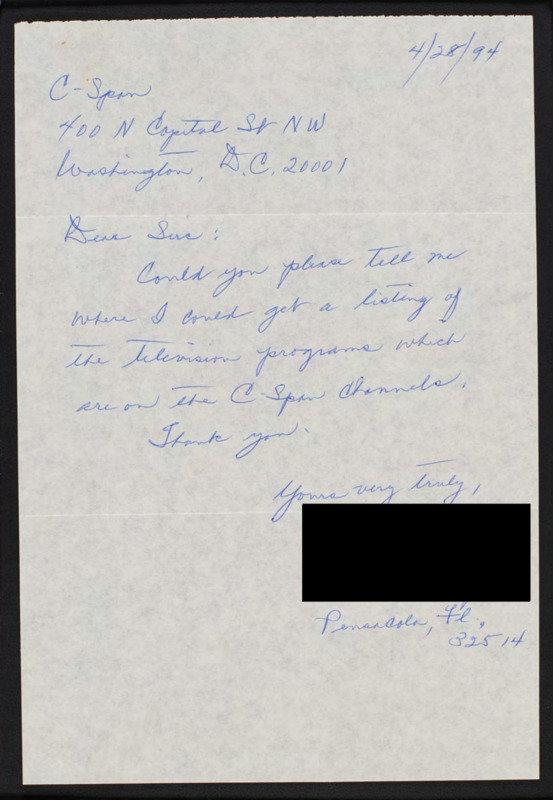 4/28/94
C-Span
400 N Capital St NW
Washington, D.C. 20001
Dear Sirs:
Could you please tell me
where I could get a listing of
the television programs which
are on the C-Span Channels.
Thank you.
Yours very truly,
Pensacola, Fl.,
32514